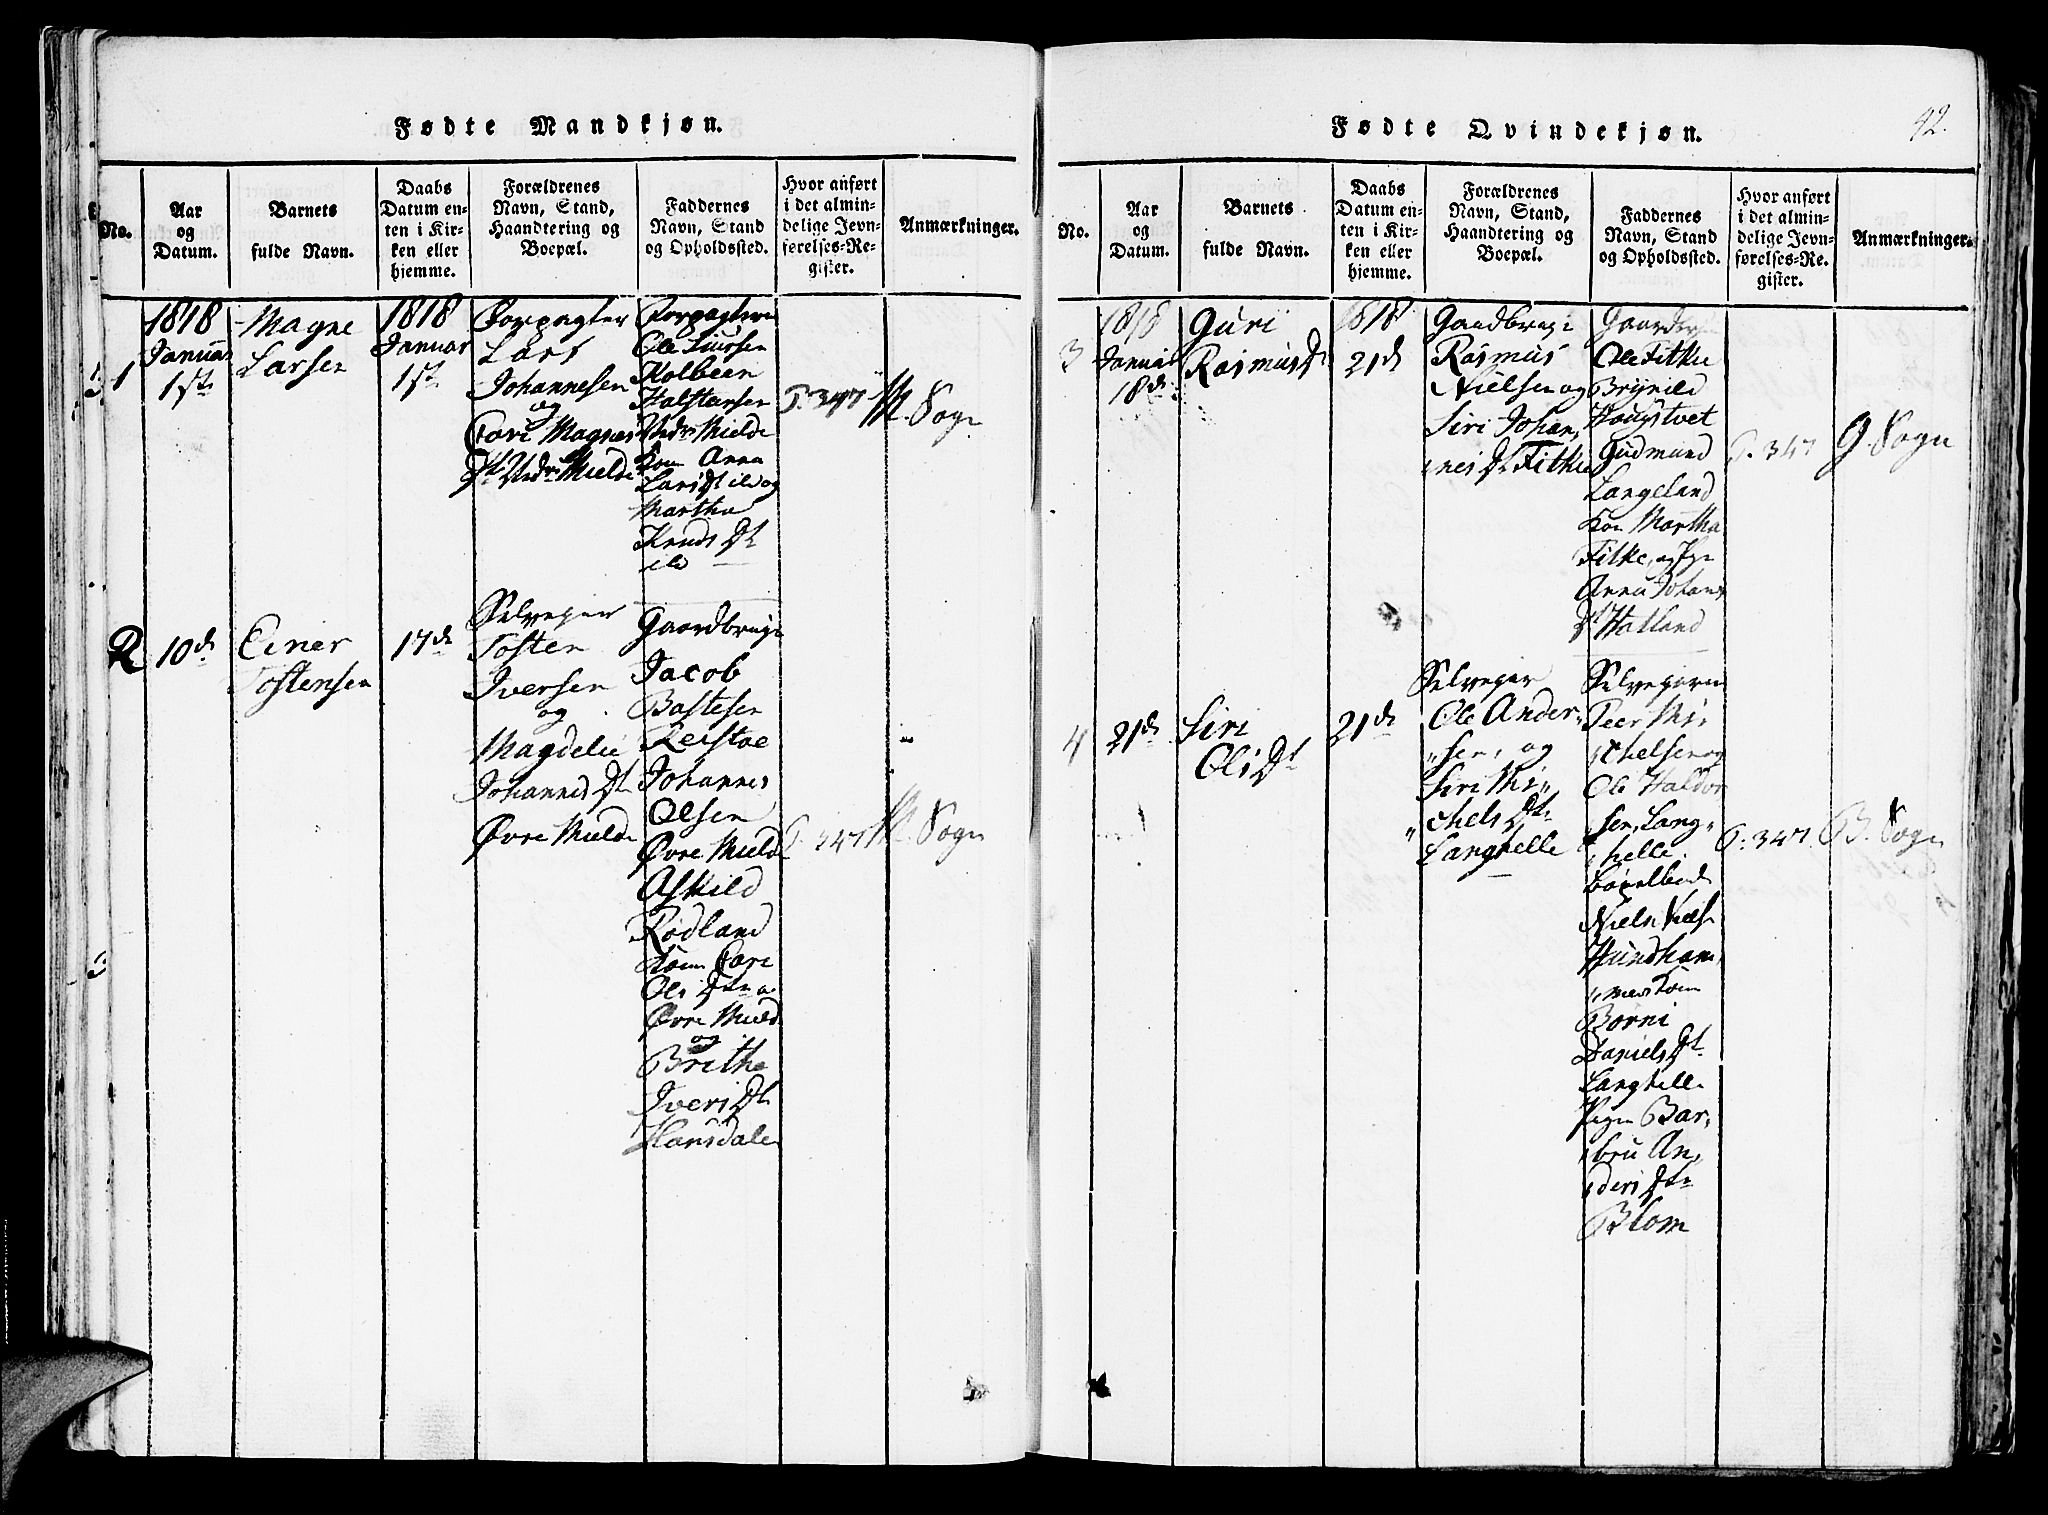 Fødte Mandkjøn.
No.
Aar
og
Datum.
Barnets
fulde Navn.
Daabs
Datum en-
ten i Kir-
ken eller
hjemme.
Forældrenes
Navn, Stand,
Haandtering og
Boepæl.
Faddernes
Navn, Stand
og Opholdssted.
Hvor anført
i det almin-
delige Jevn-
førelses-Re-
gister.
Anmærkninger.
1
1818
Januar
1ste
Magne
Larsen
1818
Januar
1ste
Forpagter
Lars
Johannesen
og
Cari Magnes
Dt Nedr Mielde
Ole Larsen
Kolbeen
Halstensen
Nedr Mielde
Kon Anna
Larsdt ibd og
Martha
Knuds Dt
ibd
P. 347
M. Sogn
2
10de
Einer
Tostensen
17de
Selveger
Tosten
Iversen
og
Magdeli
Johannes Dt
Øvre Mielde
Gaardbruge
Jacob
Bastesen
Reistae
Johannes
Olsen
Øvre Mield
Askild
Rødland
Cari
Ols Dt
Øvre Mield
og
Britha
Ivers Dt
Hansdalen
P. 347
M. Sogn
Fødte Qvindekjøn.
42.
No.
Aar
og
Datum.
Barnets
fulde Navn.
Daabs
Datum en-
ten i Kir-
ken eller
hjemme.
Forældrenes
Navn, Stand,
Haandtering og
Boepæl.
Faddernes
Navn, Stand
og Opholdssted.
Hvor anført
i det almin-
delige Jevn-
førelses-Re-
gister.
Anmærkninger.
3
1818
Januar
18de
Guri
Rasmus Dt
1818
21de
Gaardbruge
Rasmus
Nielsen og
Siri Johan,
,nes Dt Fitke
Ole Fitke
Brynild
Houystvet
Gudmund
Langeland
Kon Martha
Fitke, og Pige
Anna Johans
Dt Hatland
P. 347
G. Sogn
4
21de
Siri
Ols Dt
21de
Selveger
Ole Ander,
„sen, og
Siri Mi„
„chels Dt
Langhelle
Selvegerne
Peer Mi,
„chelsen og
Ole Haldor
„sen, Lang„
„helle.
Niels Niels
Hundham,
Børni
Daniels Dt
Langhelle
Pigen Bar„
„bru An„
„ders Dt
Blom
P. 347.
B. Sogn